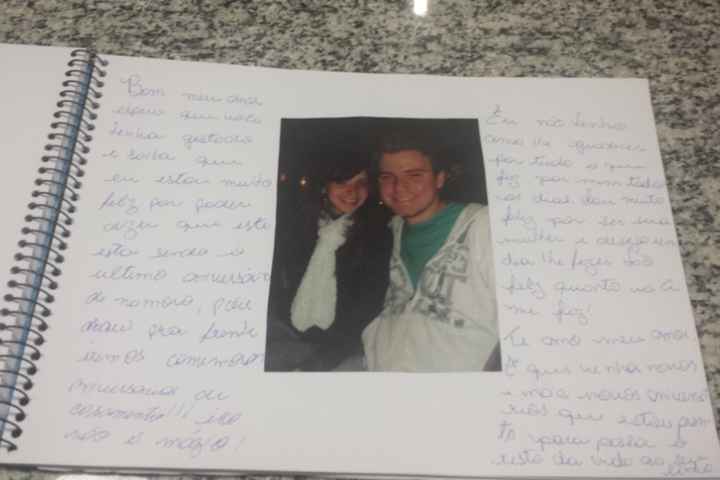 Bom meu amor
espero que você
tenha gostado
e saiba que
eu estou muito
feliz por poder
dizer que este
está sendo o
ultimo aniversário
de namoro, pois
daqui pra frente
iremos comemorar
aniversários de
casamento!!! isso
não é mágico!
Eu não tenho
como lhe agradecer
por tudo o que
fez por mim todos
os dias, sou muito
feliz por ser sua
mulher e desejo um
dia lhe fazer tão
feliz quanto você
me faz!
Te amo meu amor
E que venha novos
e mais novos aniversá
rios que estou pron
ta para passar o
resto da vida ao seu
lado